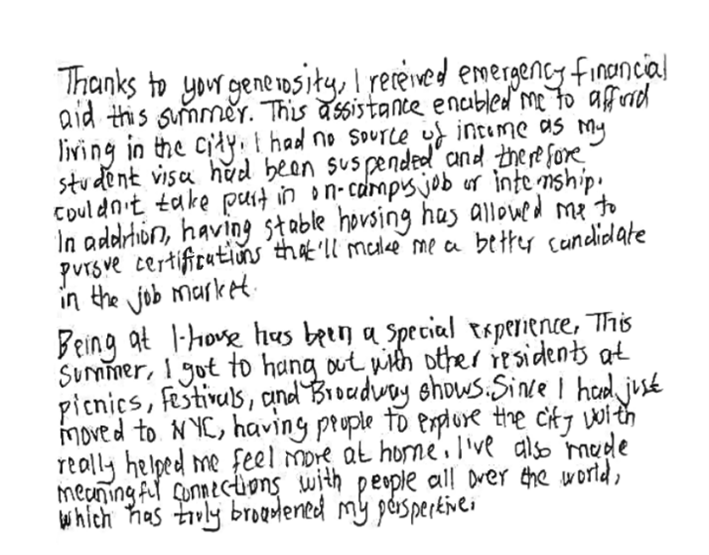 Thanks to your generosity, I received emergency financial
aid this summer. This assistance enabled me to afford
living in the city. I had no source of income as my
student visa had been suspended and therefore
couldn't take part in on-campus job or internship.
In addition, having stable housing has allowed me to
pursue certifications that'll make me a better candidate
in the job market.
Being at I-house has been a special experience. This
summer, I got to hang out with other residents at
picnics, festivals, and Broadway shows. Since I had just
moved to NYC, having people to explore the city with
really helped me feel more at home. I've also made
meaningful connections with people all over the world,
which has truly broadened my perspective.